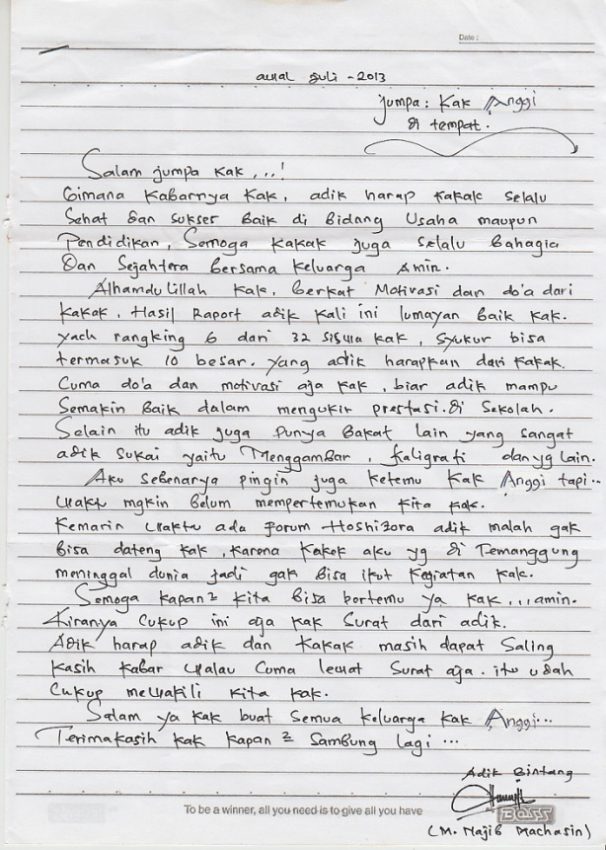 Date :
awal Juli - 2013
jumpa : Kak Anggi
di tempat.
Salam jumpa kak, ...!
Gimana Kabarnya Kak, adik harap Kakak selalu
Sehat dan sukses Baik di Bidang Usaha maupun
Pendidikan, Semoga kakak juga selalu Bahagia
Dan Sejahtera Bersama Keluarga Amin.
Alhamdulillah Kak, Berkat Motivasi dan do'a dari
Kakak, Hasil Raport adik Kali ini lumayan Baik Kak.
yach rangking 6 dari 32 siswa Kak, Syukur bisa
termasuk 10 besar. yang adik harapkan dari Kakak.
Cuma do'a dan motivasi aja Kak, biar adik mampu
Semakin Baik dalam mengukir prestasi di Sekolah.
Selain itu adik juga Punya Bakat lain yang sangat
adik Sukai yaitu Menggambar, Kaligrafi dan yg lain.
Aku Sebenarya pingin juga ketemu Kak Anggi tapi..
Waktu mgkin Belum mempertemukan Kita Kak.
Kemarin Waktu ada Forum Hoshizora adik malah gak
Bisa dateng Kak, Karena Kakek aku yg di Temanggung
meninggal dunia jadi gak Bisa ikut Kegiatan Kak.
Semoga Kapan2 Kita Bisa bertemu ya Kak ... amin.
Kiranya Cukup ini aja Kak Surat dari adik.
Adik harap adik dan Kakak masih dapat Saling
Kasih Kabar Walau Cuma lewat Surat aja. itu udah
Cukup mewakili Kita Kak.
Salam ya Kak buat Semua Keluarga Kak Anggi...
Terimakasih Kak Kapan2 Sambung lagi ...
Adik Bintang
To be a winner, all you need is to give all you have
BOSS
(M. Najib Machasin)